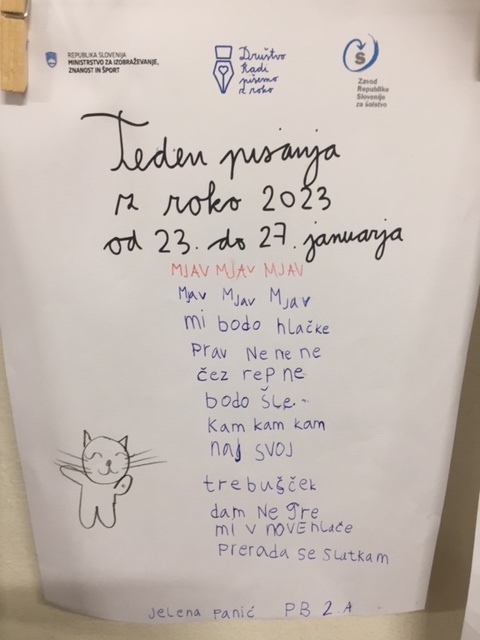 REPUBLIKA SLOVENIJA
MINISTRSTVO ZA IZOBRAŽEVANJE,
ZNANOST IN ŠPORT
Društvo
Radi
pišemo
z roko
Zavod
Republike
Slovenije
za šolstvo
Teden pisanja
z roko 2023
od 23. do 27. januarja
MJAV MJAV MJAV
Mjav MJav MJav
mi bodo hlačke
Prav Ne ne ne
čez rep ne
bodo šle.
Kam kam kam
naj svoj
trebušček
dam Ne gre
mi v nove hlače
Prerada se slatkam
Jelena Panić PB 2.A